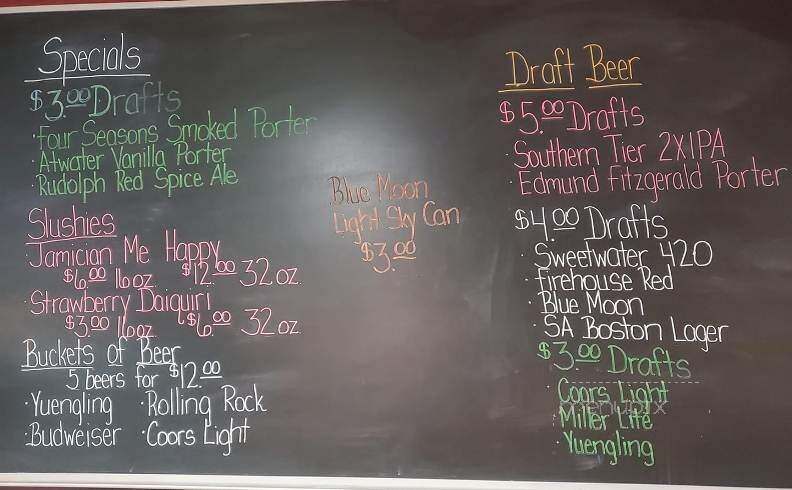 Specials
$3.00 Drafts
·Four Seasons Smoked Porter
·Atwater Vanilla Porter
·Rudolph Red Spice Ale
Slushies
·Jamician Me Happy
$6.00 16oz $12.00 32oz
·Strawberry Daiquiri
$3.00 16oz $6.00 32oz
Buckets of Beer
5 beers for $12.00
·Yuengling ·Rolling Rock
·Budweiser ·Coors Light
Blue Moon
Light Sky Can
$3.00
Draft Beer
$5.00 Drafts
·Southern Tier 2XIPA
·Edmund Fitzgerald Porter
$4.00 Drafts
·Sweetwater 420
·Firehouse Red
·Blue Moon
·SA Boston Lager
$3.00 Drafts
·Coors Light
·Miller Lite
·Yuengling